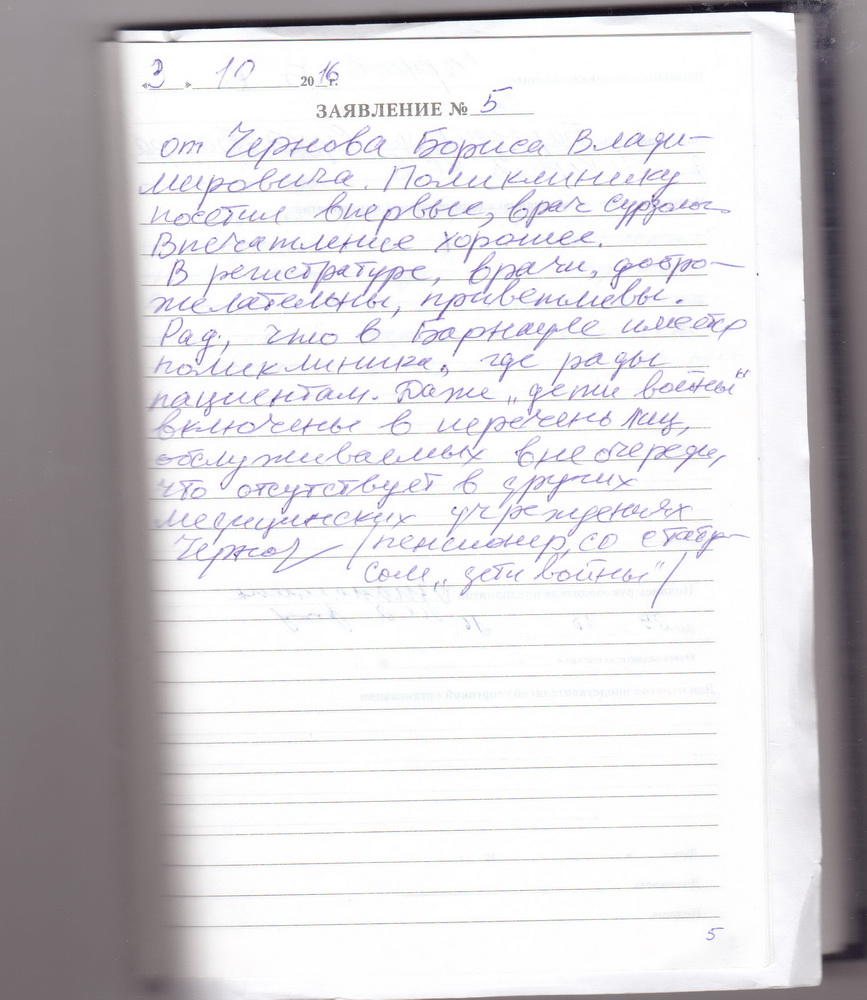 «3» 10 2016 г.
ЗАЯВЛЕНИЕ № 5
от Чернова Бориса Влади-
мировича. Поликлинику
посетил впервые, врач сурдолог.
Впечатление хорошее.
В регистратуре, врачи, добро-
желательны, приветливы.
Рад, что в Барнауле имеется
поликлиника, где рады
пациентам. Даже „дети войны"
включены в перечень лиц,
обслуживаемых вне очереди,
что отсутствует в других
медицинских учреждениях
Чернов /пенсионер, со стату-
сом „дети войны"/
5